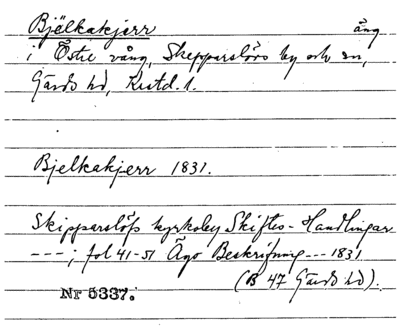 Bjälkakjerr äng
i Östre vång, Skepparslövs by och sn,
Gärds hd, Kristd. l.
Bjelkakjerr 1831.
Skipparslöfs kyrkoby Skiftes-Handlingar
---; fol 41-51 Ägo Beskrifning --- 1831
(B 47 Gärds hd).
Nr 5337.